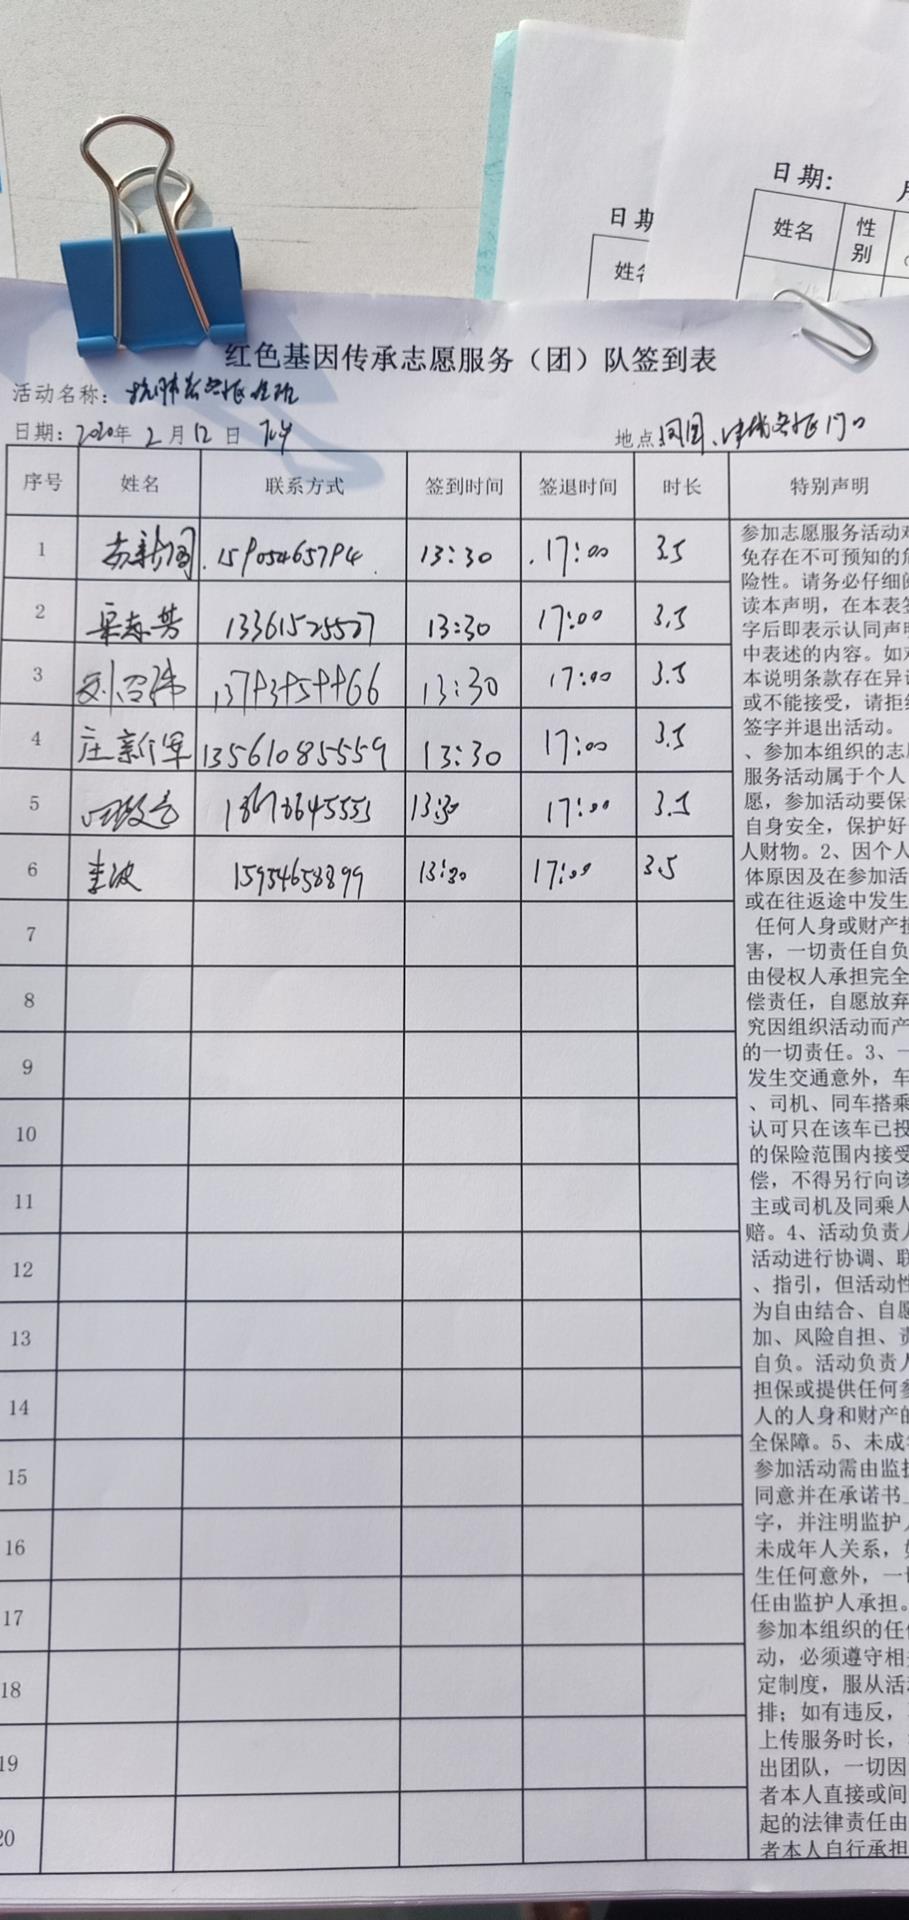 日期:
姓名 性别
日期
姓名
红色基因传承志愿服务（团）队签到表
活动名称：
日期：2020年 2月12日 下午 地点
序号 姓名 联系方式 签到时间 签退时间 时长 特别声明
1 15905465794 13:30 17:00 3.5
2 13361525527 13:30 17:00 3.5
3 13:30 17:00 3.5
4 庄新军 13561085559 13:30 17:00 3.5
5 13:30 17:00 3.5
6 李波 15954658899 13:30 17:00 3.5
7
8
9
10
11
12
13
14
15
16
17
18
19
20
参加志愿服务活动难
免存在不可预知的危
险性。请务必仔细阅
读本声明，在本表签
字后即表示认同声明
中表述的内容。如对
本说明条款存在异议
或不能接受，请拒绝
签字并退出活动。
、参加本组织的志愿
服务活动属于个人
愿，参加活动要保
自身安全，保护好
人财物。2、因个人
体原因及在参加活
或在往返途中发生
任何人身或财产损
害，一切责任自负
由侵权人承担完全
偿责任，自愿放弃
究因组织活动而产
的一切责任。3、一
发生交通意外，车
、司机、同车搭乘
认可只在该车已投
的保险范围内接受
偿，不得另行向该
主或司机及同乘人
赔。4、活动负责人
活动进行协调、联
、指引，但活动性
为自由结合、自愿
加、风险自担、责
自负。活动负责人
担保或提供任何参
人的人身和财产的
全保障。5、未成年
参加活动需由监护
同意并在承诺书上
字，并注明监护人
未成年人关系，如
生任何意外，一切
任由监护人承担。
参加本组织的任何
动，必须遵守相关
定制度，服从活动
排；如有违反，
上传服务时长，
出团队，一切因
者本人直接或间
起的法律责任由
者本人自行承担